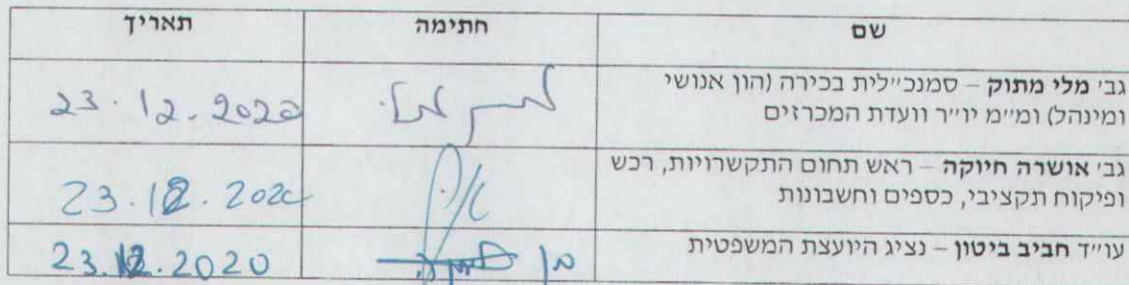 שם חתימה תאריך
גבי מלי מתוק – סמנכ״לית בכירה (הון אנושי
ומינהל) ומ״מ יו״ר וועדת המכרזים
23.12.2020
גבי אושרה חיוקה – ראש תחום התקשרויות, רכש
ופיקוח תקציבי, כספים וחשבונות
23.12.2020
עו״ד חביב ביטון – נציג היועצת המשפטית
23.12.2020